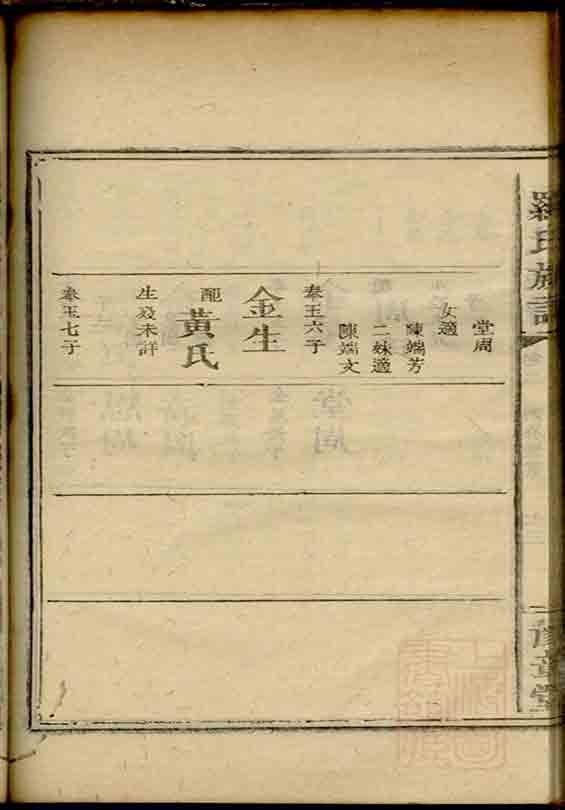 羅氏族譜
豫章堂
堂周
女適
陳端芳
二妹適
陳端文
奉玉六子
金生
配
黃氏
生歿未詳
奉玉七子